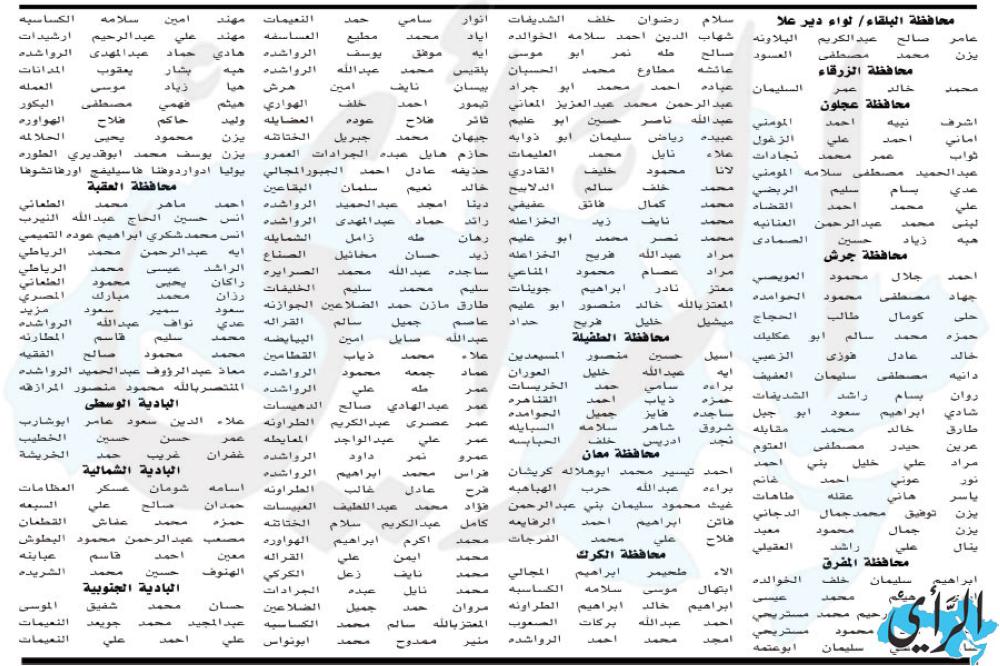 محافظة البلقاء/ لواء دير علا
عامر صالح عبدالكريم البلاونه
يزن محمد مصطفى السعود
محافظة الزرقاء
محمد خالد عمر السليمان
محافظة عجلون
اشرف نبيه احمد المومني
اماني احمد علي الزغول
ثواب عمر محمد نجادات
عبدالحميد مصطفى سلامه المومني
عدي بسام سليم الربضي
علي محمد احمد القضاه
لبنى محمد عبدالرحمن العنانبه
هبه زياد حسين الصمادى
محافظة جرش
احمد جلال محمود العويصي
جهاد مصطفى محمود الحوامده
حلى كومال طالب الحجاج
حمزه محمد سالم ابو عكليك
خالد عادل فوزى الزعبي
دانيه مصطفى سليمان العفيف
روان بسام راشد الشديفات
شادي ابراهيم سعود ابو جبل
طارق خالد محمد مقابله
عرين حيدر مصطفى العتوم
مراد علي خليل بني احمد
نور عوني احمد غانم
ياسر هاني عقله طاهات
يزن توفيق محمدجمال الدجاني
يزن جمال محمود معبد
ينال علي راشد العقيلي
محافظة المفرق
ابراهيم سليمان خلف الخوالده
هيثم محمد عيسى
محمد مستريحي
محمود مستريحي
سليمان ابوعتمه
الرأي
سلام رضوان خلف الشديفات
شهاب الدين احمد سلامه الخوالده
صالح طه نمر ابو موسى
عائشه مطاوع محمد الحسبان
عباده احمد محمد ابو جراد
عبدالرحمن محمد عبدالعزيز المعاني
عبدالله ناصر حسين ابو عليم
عبيده رياض سليمان ابو ذوابه
علاء نايل محمد العليمات
لانا محمود خليف القادري
محمد خلف سالم الدلابيح
محمد كمال فائق عفيفي
محمد نايف زيد الخزاعله
محمد نصر محمد ابو عليم
مراد عبدالله فريح الخزاعله
مراد عصام محمود المناعي
معتز نادر ابراهيم جوينات
المعتزبالله خالد منصور ابو عليم
ميشيل خليل فريح حداد
محافظة الطفيلة
اسيل حسين منصور المسيعدين
ايه عبدالله خليل العوران
براءه سامي حمد الخريسات
حمزه ذياب احمد القناهره
ساجده فايز جميل الحوامده
شروق شاهر سلامه السبايله
نجد ادريس خلف الحبابسه
محافظة معان
احمد تيسير محمد ابوهلاله كريشان
براءه عبدالله حرب الهباهبه
غيث محمود سليمان بني عبدالرحمن
فاتن ابراهيم احمد الرفايعه
فلاح علي محمد الفرجات
محافظة الكرك
الاء طحيمر ابراهيم المجالي
ابتهال موسى سلامه الكساسبه
ابراهيم خالد ابراهيم الطراونه
احمد عبدالله بركات الصعوب
امجد محمد احمد الرواشده
انوار سامي حمد النعيمات
اياد محمد مطيع العساسفه
ايه موفق يوسف الرواشده
بلقيس محمد عبدالله الرواشده
بيسان نايف امين هرش
تيمور احمد خلف الهواري
ثائر فلاح عوده العضايله
جيهان محمد جبريل الختاتنه
حازم هايل عبده الجرادات العمرو
حذيفه عادل احمد الجبورالمجالي
خالد نعيم سلمان البقاعين
دينا امجد عبدالحميد الرواشده
رائد حماد عبدالمهدى الرواشده
رهان طه زامل الشمايله
زيد حسان مخائيل الصناع
ساجده عبدالله محمد الصرايره
سليم محمد سليم الخليفات
طارق مازن حمد الضلاعين الجوازنه
عاصم جميل سالم القراله
عبدالله صايل امين البيايضه
علاء محمد ذياب القطامين
عماد جمعه محمود الرواشده
عمر طه علي الرواشده
عمر عبدالهادي صالح الدهيسات
عمر عصرى عبدالكريم الطراونه
عمر علي عبدالواجد المعايطه
عمرو نمر داود الرواشده
فراس محمد ابراهيم الرواشده
فرح عادل غالب الطراونه
فؤاد محمد عبداللطيف العبيسات
كامل عبدالكريم سلام الختاتنه
محمد اكرم ابراهيم الهواوره
محمد ايمن علي القراله
محمد نايف زعل الكركي
محمد نايل عبده الجرادات
مروان حمد جميل الضلاعين
المعتزبالله سالم محمد الكساسبه
منير ممدوح محمد ابونواس
مهند امين سلامه الكساسبه
مهند علي عبدالرحيم ارشيدات
هادي حماد عبدالمهدى الرواشده
هبه بشار يعقوب المدانات
هيا زياد موسى العمله
هيثم فهمي مصطفى البكور
وليد حاكم فلاح الهواوره
يزن محمود يحيى الحلالمه
يزن يوسف محمد ابوقديري الطوره
يوليا ادواردوفنا فاسيليفج اورفاتشوفا
محافظة العقبة
احمد ماهر محمد الطعاني
انس حسين الحاج عبدالله النيرب
انس محمدشكري ابراهيم عوده التميمي
ايه عبدالرحمن محمد الرياطي
الراشد عيسى محمد الرياطي
راكان يحيى محمود الطعاني
رزان محمد مبارك المصري
سعود سمير سعود مزيد
عدي نواف عبدالله الرواشده
محمد سليم قاسم المطارنه
محمد محمود صالح الفقيه
معاذ عبدالرؤوف عبدالحميد الرواشده
المنتصربالله محمود منصور المرازقه
البادية الوسطى
علاء الدين سعود عامر ابوشارب
عمر حسن حسين الخطيب
غفران غريب حمد الخريشة
البادية الشمالية
اسامه شومان عسكر العظامات
حمدان صالح علي السبعه
حمزه محمد عفاش القطعان
مصعب عبدالرحمن محمود البطوش
معين احمد قاسم عبابنه
الهنوف حسين محمد الشريده
البادية الجنوبية
حسان محمد شفيق الموسى
عبدالمجيد محمد جويعد النعيمات
علي احمد علي النعيمات